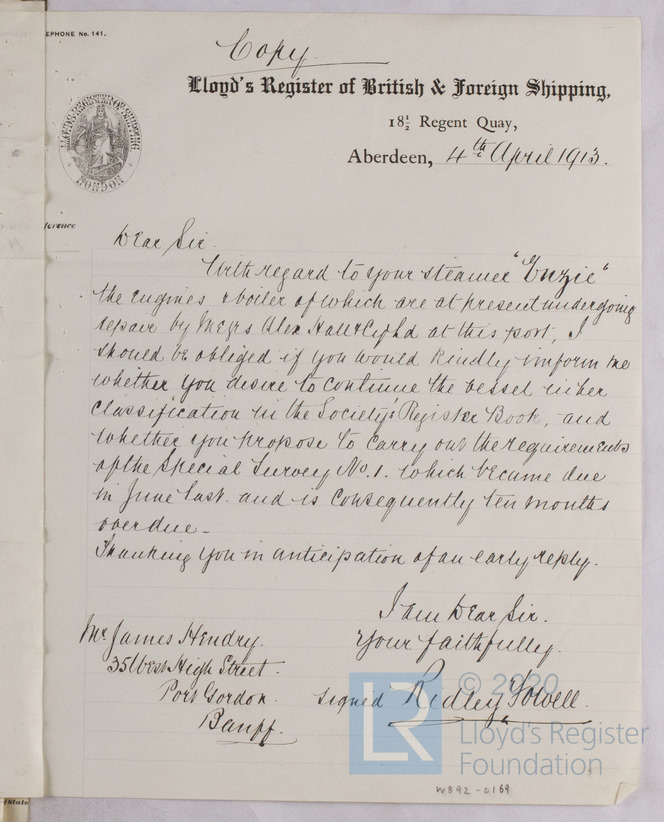 EPHONE No. 141.
Copy
Lloyd's Register of British & Foreign Shipping,
18½ Regent Quay,
Aberdeen, 4th April 1913.
LONDON
ference
Dear Sir.
With regard to your steamer "Enzie"
the engines & boiler of which are at present undergoing
repair by Messrs Alex Hall & Co Ltd at this port, I
should be obliged if you would kindly inform me
whether you desire to continue the vessel in her
classification in the Society's Register Book, and
whether you propose to carry out the requirements
of the Special Survey No. 1. which became due
in June last and is consequently ten months
overdue -
Thanking you in anticipation of an early reply.
I am Dear Sir.
Your faithfully.
Mr James Hendry.
35 West High Street.
Port Gordon.
Banff.
signed Ridley Towell.
© 2020
LR Lloyd's Register
Foundation
W892-0169
(State